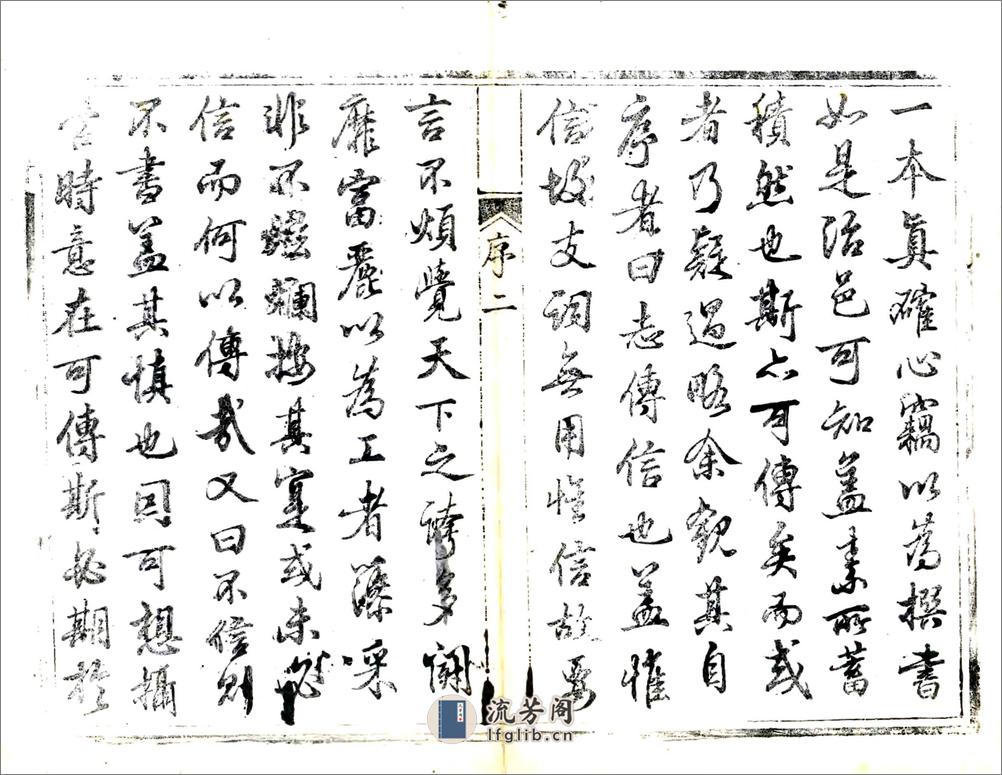 一本真確心竊以為撰書
如是治邑可知蓋素所蓄
積然也斯亦可傳矣而或
者乃疑過略余觀其自
序者曰志傳信也蓋惟
信故支詞無用惟信故要
序二
言不煩覺天下之誇多鬭
靡富麗以為工者藻采
非不斑斕按其寔或未必
信而何以傳哉又曰不信則
不書蓋其慎也固可想攝
當時意在可傳斯必期於
流芳阁
lfglib.cn